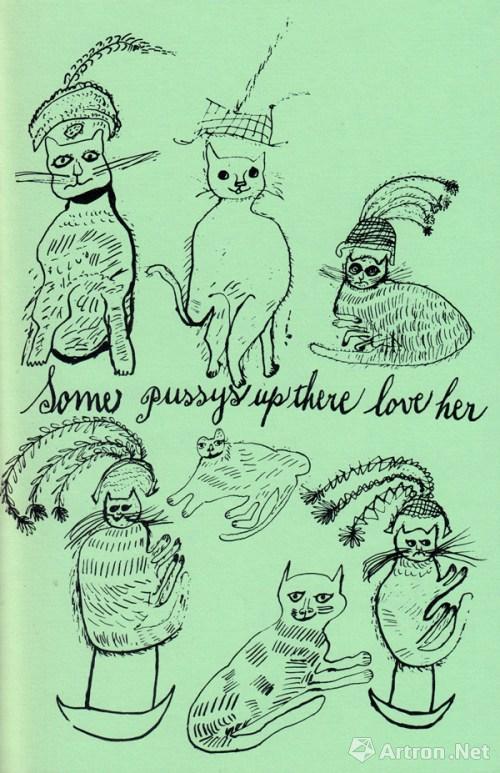 Some pussys up there love her
Artron.Net